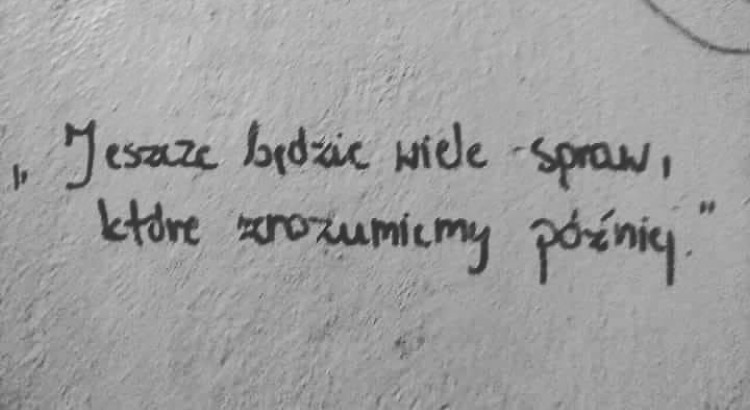 „Jeszcze będzie wiele spraw,
które zrozumiemy później."